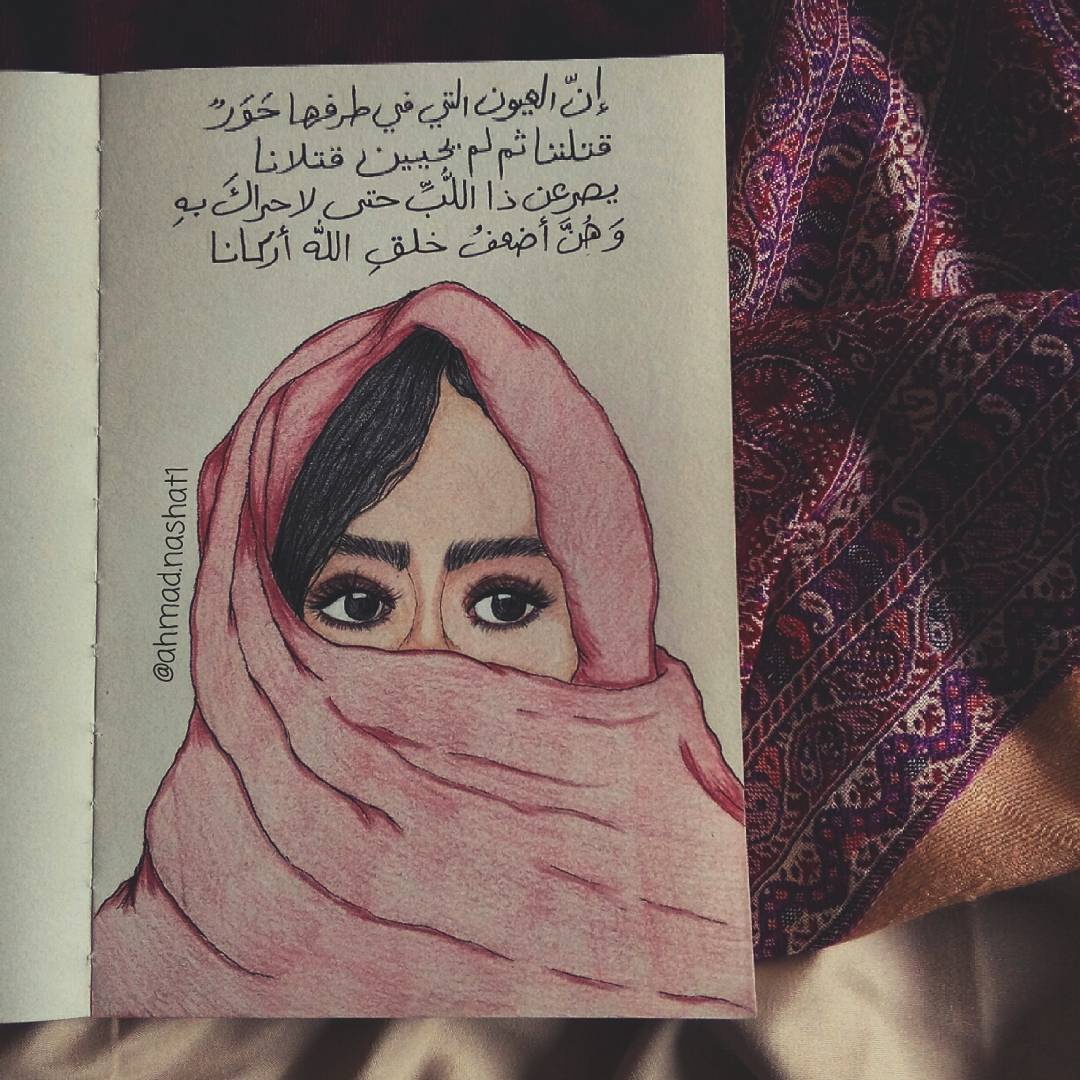 إنّ العيون التي في طرفها حَوَرٌ
قتلننا ثم لم يحيين قتلانا
يصرعن ذا اللُّبِّ حتى لا حراكَ بهِ
وَهُنَّ أضعفُ خلقِ الله أركانا
@ahmad.nashat1